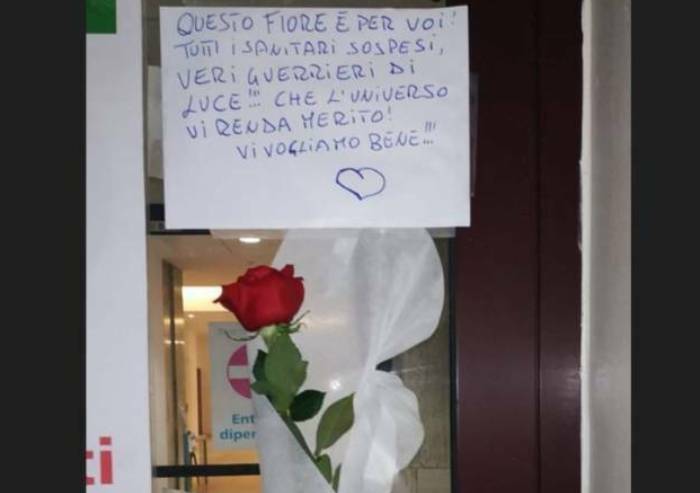 QUESTO FIORE È PER VOI!
TUTTI I SANITARI SOSPESI,
VERI GUERRIERI DI
LUCE!!! CHE L'UNIVERSO
VI RENDA MERITO!
VI VOGLIAMO BENE!!!
Ent
dipe
ti